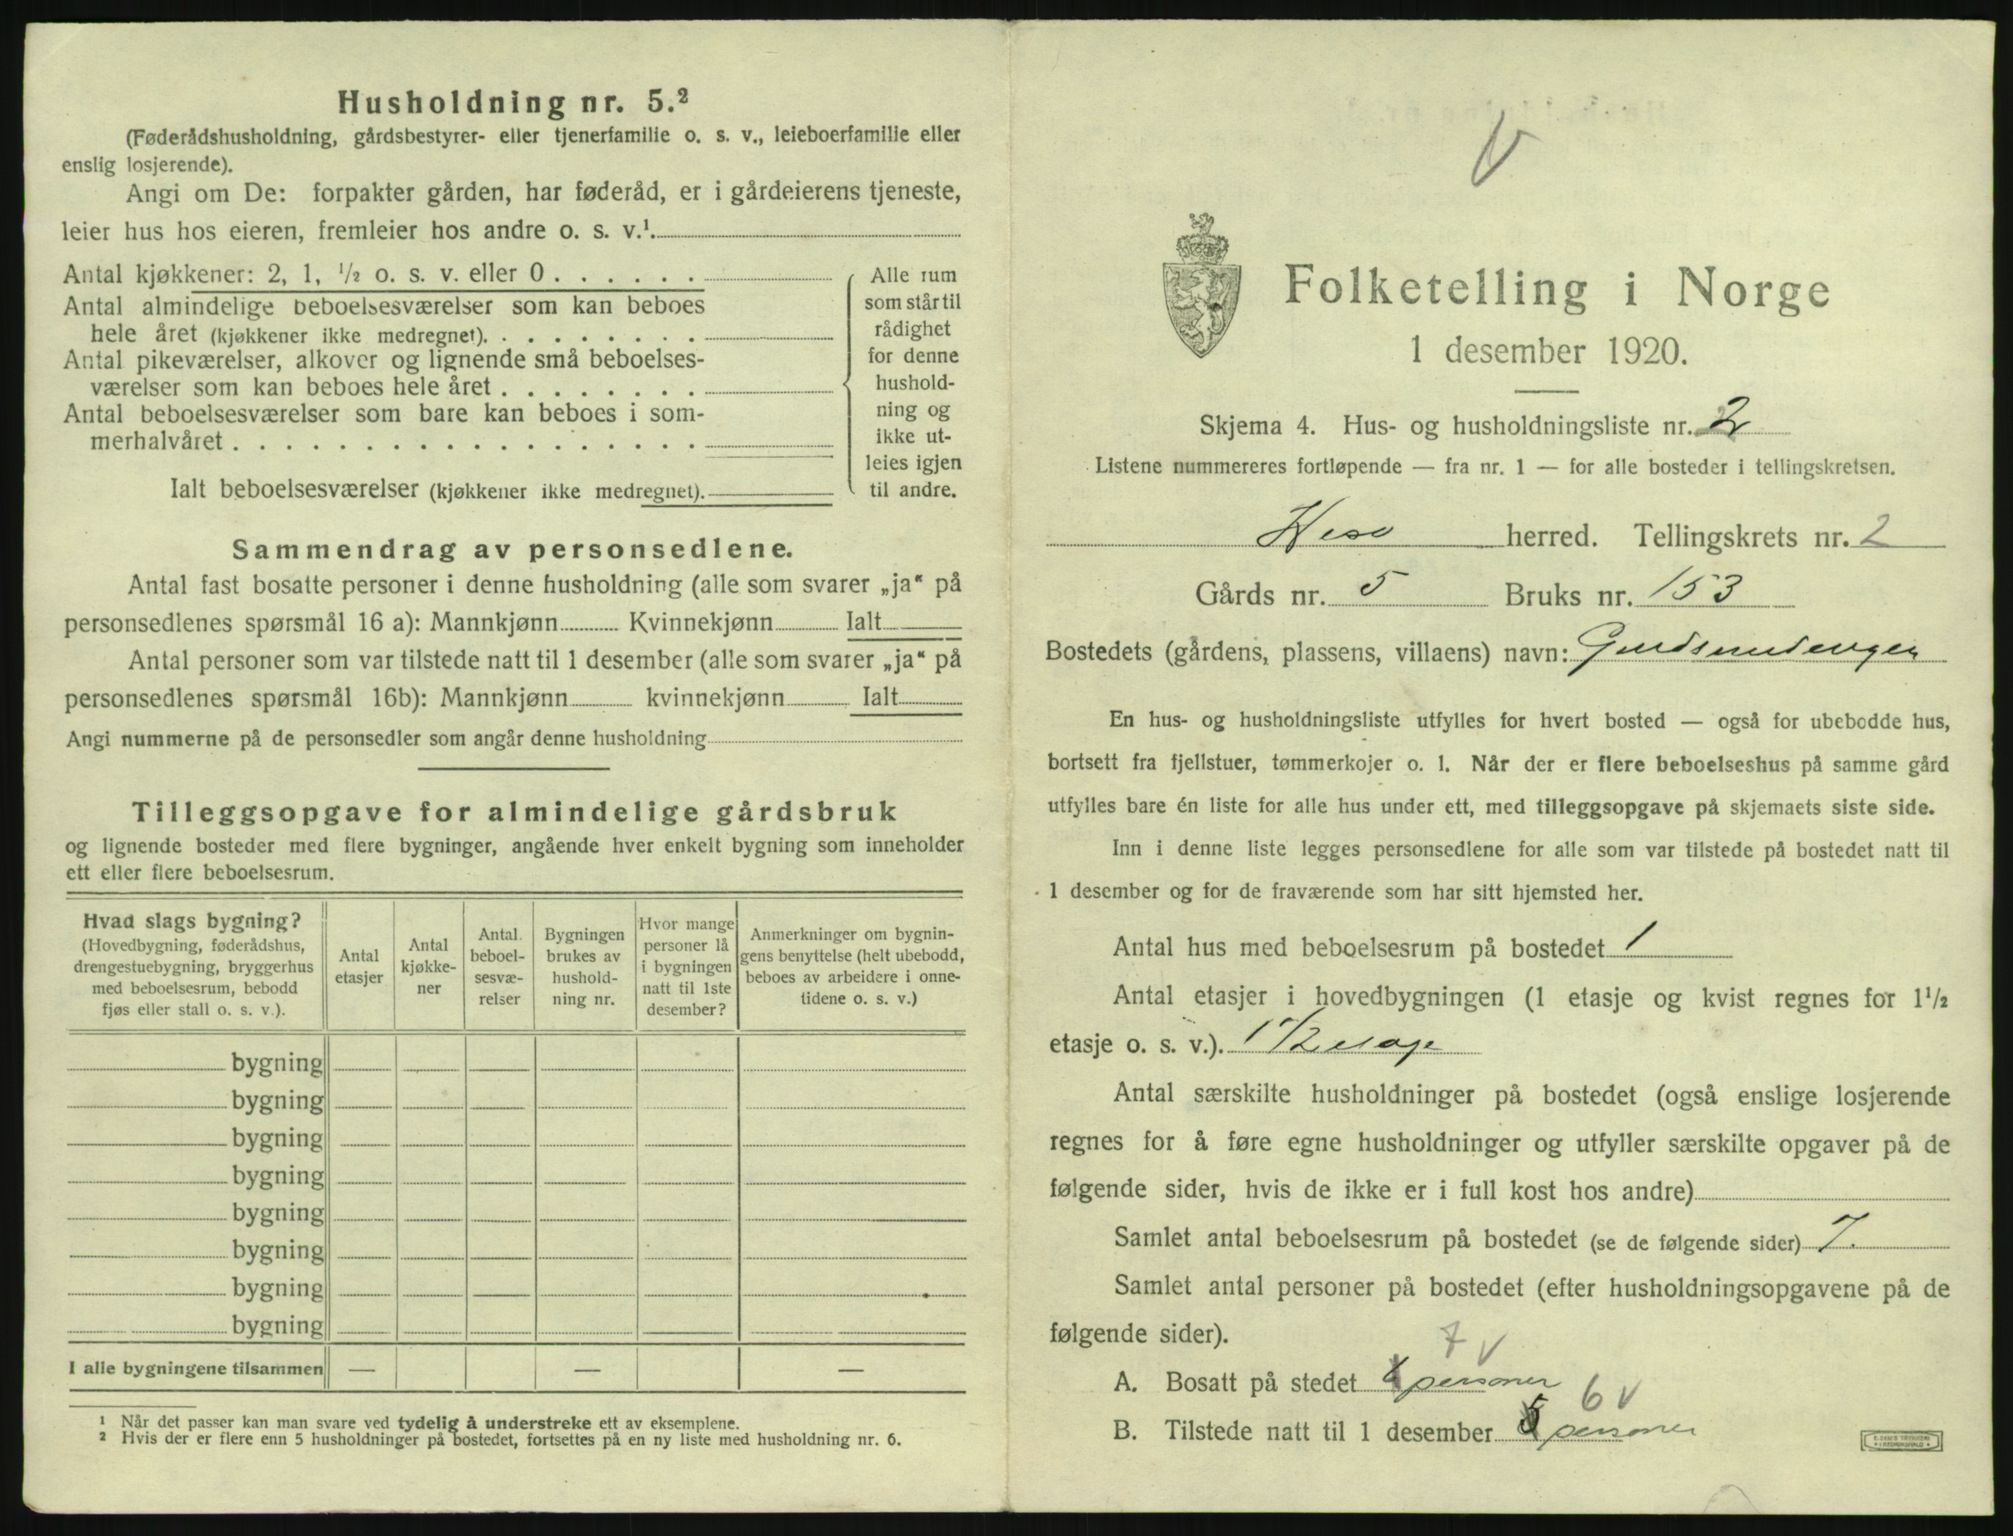 Husholdning nr. 5.²
(Føderådshusholdning, gårdsbestyrer- eller tjenerfamilie o. s. v., leieboerfamilie eller
enslig losjerende).
Angi om De: forpakter gården, har føderåd, er i gårdeierens tjeneste,
leier hus hos eieren, fremleier hos andre o. s. v.¹
Antal kjøkkener: 2, 1, ½ o. s. v. eller 0 . . . . . .
Antal almindelige beboelsesværelser som kan beboes
hele året (kjøkkener ikke medregnet). . . . . . . . .
Antal pikeværelser, alkover og lignende små beboelses-
værelser som kan beboes hele året . . . . . . . .
Antal beboelsesværelser som bare kan beboes i som-
merhalvåret . . . . . . . . . . . . . . . . . .
Ialt beboelsesværelser (kjøkkener ikke medregnet).
Alle rum
som står til
rådighet
for denne
hushold-
ning og
ikke ut-
leies igjen
til andre.
Sammendrag av personsedlene.
Antal fast bosatte personer i denne husholdning (alle som svarer „ja“ på
personsedlenes spørsmål 16 a): Mannkjønn Kvinnekjønn Ialt
Antal personer som var tilstede natt til 1 desember (alle som svarer „ja“ på
personsedlenes spørsmål 16b): Mannkjønn kvinnekjønn Ialt
Angi nummerne på de personsedler som angår denne husholdning
Tilleggsopgave for almindelige gårdsbruk
og lignende bosteder med flere bygninger, angående hver enkelt bygning som inneholder
ett eller flere beboelsesrum.
Hvad slags bygning?
(Hovedbygning, føderådshus,
drengestuebygning, bryggerhus
med beboelsesrum, bebodd
fjøs eller stall o. s. v.).
Antal
etasjer
Antal
kjøkke-
ner
Antal
beboel-
sesvæ-
relser
Bygningen
brukes av
hushold-
ning nr.
Hvor mange
personer lå
i bygningen
natt til 1ste
desember?
Anmerkninger om bygnin-
gens benyttelse (helt ubebodd,
beboes av arbeidere i onne-
tidene o. s. v.)
bygning
bygning
bygning
bygning
bygning
bygning
bygning
bygning
I alle bygningene tilsammen — — —
¹ Når det passer kan man svare ved tydelig å understreke ett av eksemplene.
² Hvis der er flere enn 5 husholdninger på bostedet, fortsettes på en ny liste med husholdning nr. 6.
V
Folketelling i Norge
1 desember 1920.
Skjema 4. Hus- og husholdningsliste nr. 2
Listene nummereres fortløpende — fra nr. 1 — for alle bosteder i tellingskretsen.
Heso herred. Tellingskrets nr. 2
Gårds nr. 5 Bruks nr. 153
Bostedets (gårdens, plassens, villaens) navn:
En hus- og husholdningsliste utfylles for hvert bosted — også for ubebodde hus,
bortsett fra fjellstuer, tømmerkojer o. l. Når der er flere beboelseshus på samme gård
utfylles bare én liste for alle hus under ett, med tilleggsopgave på skjemaets siste side.
Inn i denne liste legges personsedlene for alle som var tilstede på bostedet natt til
1 desember og for de fraværende som har sitt hjemsted her.
Antal hus med beboelsesrum på bostedet 1
Antal etasjer i hovedbygningen (1 etasje og kvist regnes for 1½
etasje o. s. v.). 1 ½
Antal særskilte husholdninger på bostedet (også enslige losjerende
regnes for å føre egne husholdninger og utfyller særskilte opgaver på de
følgende sider, hvis de ikke er i full kost hos andre)
Samlet antal beboelsesrum på bostedet (se de følgende sider) 7.
Samlet antal personer på bostedet (efter husholdningsopgavene på de
følgende sider).
7 v
A. Bosatt på stedet personer
6 v
B. Tilstede natt til 1 desember 5 personer